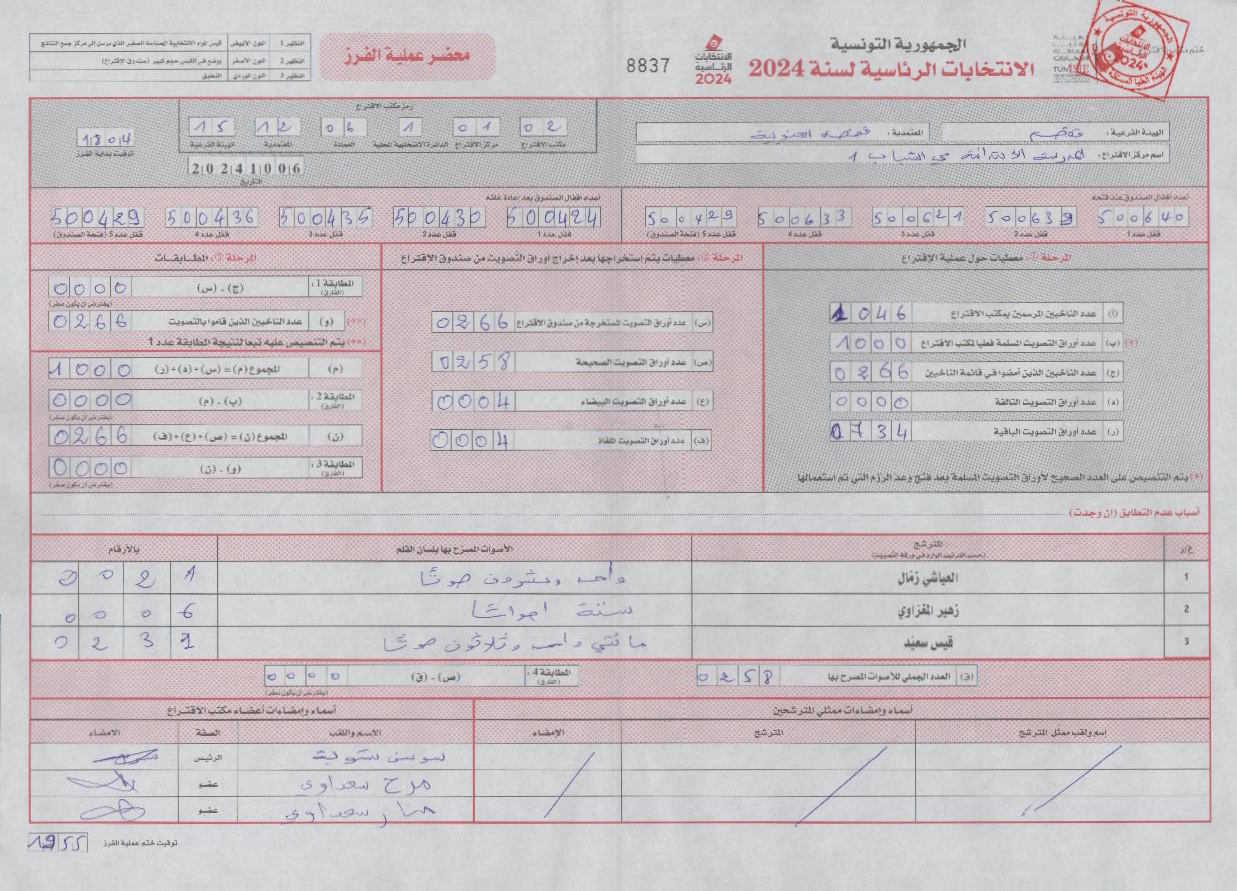 الجمهورية التونسية
الانتخابات الرئاسية لسنة 2024
الانتخابات الرئاسية 2024
8837
محضر عملية الفرز
النظير 1 اللون الأبيض
النظير 2 اللون الأصفر
النظير 3 اللون الوردي للتعليق
الهيئة الفرعية : قفصة
المعتمدية :
اسم مركز الاقتراع :
رمز مكتب الاقتراع
02 01 1 06 12 15
مكتب الاقتراع مركز الاقتراع الدائرة الانتخابية المحلية العمادة المعتمدية الهيئة الفرعية
20241006
التاريخ
1804
توقيت بداية الفرز
أعداد أقفال الصندوق عند فتحه
500640 500639 500621 500633 500429
قفل عدد 1 قفل عدد 2 قفل عدد 3 قفل عدد 4 قفل عدد 5 (فتحة الصندوق)
أعداد أقفال الصندوق بعد إعادة غلقه
500424 500430 500435 500436 500429
قفل عدد 1 قفل عدد 2 قفل عدد 3 قفل عدد 4 قفل عدد 5 (فتحة الصندوق)
المرحلة ①: معطيات حول عملية الاقتراع
(أ) عدد الناخبين المرسمين بمكتب الاقتراع 1046
(*) (ب) عدد أوراق التصويت المسلمة فعليا لمكتب الاقتراع 1000
(ج) عدد الناخبين الذين أمضوا في قائمة الناخبين 0266
(د) عدد أوراق التصويت التالفة 0000
(ر) عدد أوراق التصويت الباقية 0734
(*) يتم التنصيص على العدد الصحيح لأوراق التصويت المسلمة بعد فتح وعد الرزم التي تم استعمالها
المرحلة ②: معطيات يتم استخراجها بعد إخراج أوراق التصويت من صندوق الاقتراع
(س) عدد أوراق التصويت المستخرجة من صندوق الاقتراع 0266
(ص) عدد أوراق التصويت الصحيحة 0258
(ع) عدد أوراق التصويت البيضاء 0004
(ف) عدد أوراق التصويت الملغاة 0004
المرحلة ③: المطابقات
المطابقة 1 : (الفارق) (ج) - (س) 0000
(يفترض أن يكون صفر)
(**) (و) عدد الناخبين الذين قاموا بالتصويت 0266
(**) يتم التنصيص عليه تبعا لنتيجة المطابقة عدد 1
(م) المجموع (م) = (س) + (د) + (ر) 1000
المطابقة 2 : (الفارق) (ب) - (م) 0000
(يفترض أن يكون صفر)
(ن) المجموع (ن) = (ص) + (ع) + (ف) 0266
المطابقة 3 : (الفارق) (و) - (ن) 0000
(يفترض أن يكون صفر)
أسباب عدم التطابق (إن وجدت)
ع/د المترشح (حسب الترتيب الوارد في ورقة التصويت) الأصوات المصرح بها بلسان القلم بالأرقام
1 العياشي زمّال واحد وعشرون صوتا 0021
2 زهير المغزاوي ستة أصواتا 0006
3 قيس سعيّد مائتي واحد وثلاثون صوتا 0231
(ق) العدد الجملي للأصوات المصرح بها 0258
المطابقة 4 : (الفارق) (ص) - (ق) 0000
(يفترض أن يكون صفر)
أسماء وإمضاءات ممثلي المترشحين
اسم ولقب ممثل المترشح المترشح الإمضاء
أسماء وإمضاءات أعضاء مكتب الاقتراع
الاسم واللقب الصفة الامضاء
الرئيس
سعداوي عضو
سعداوي عضو
توقيت ختم عملية الفرز 1955